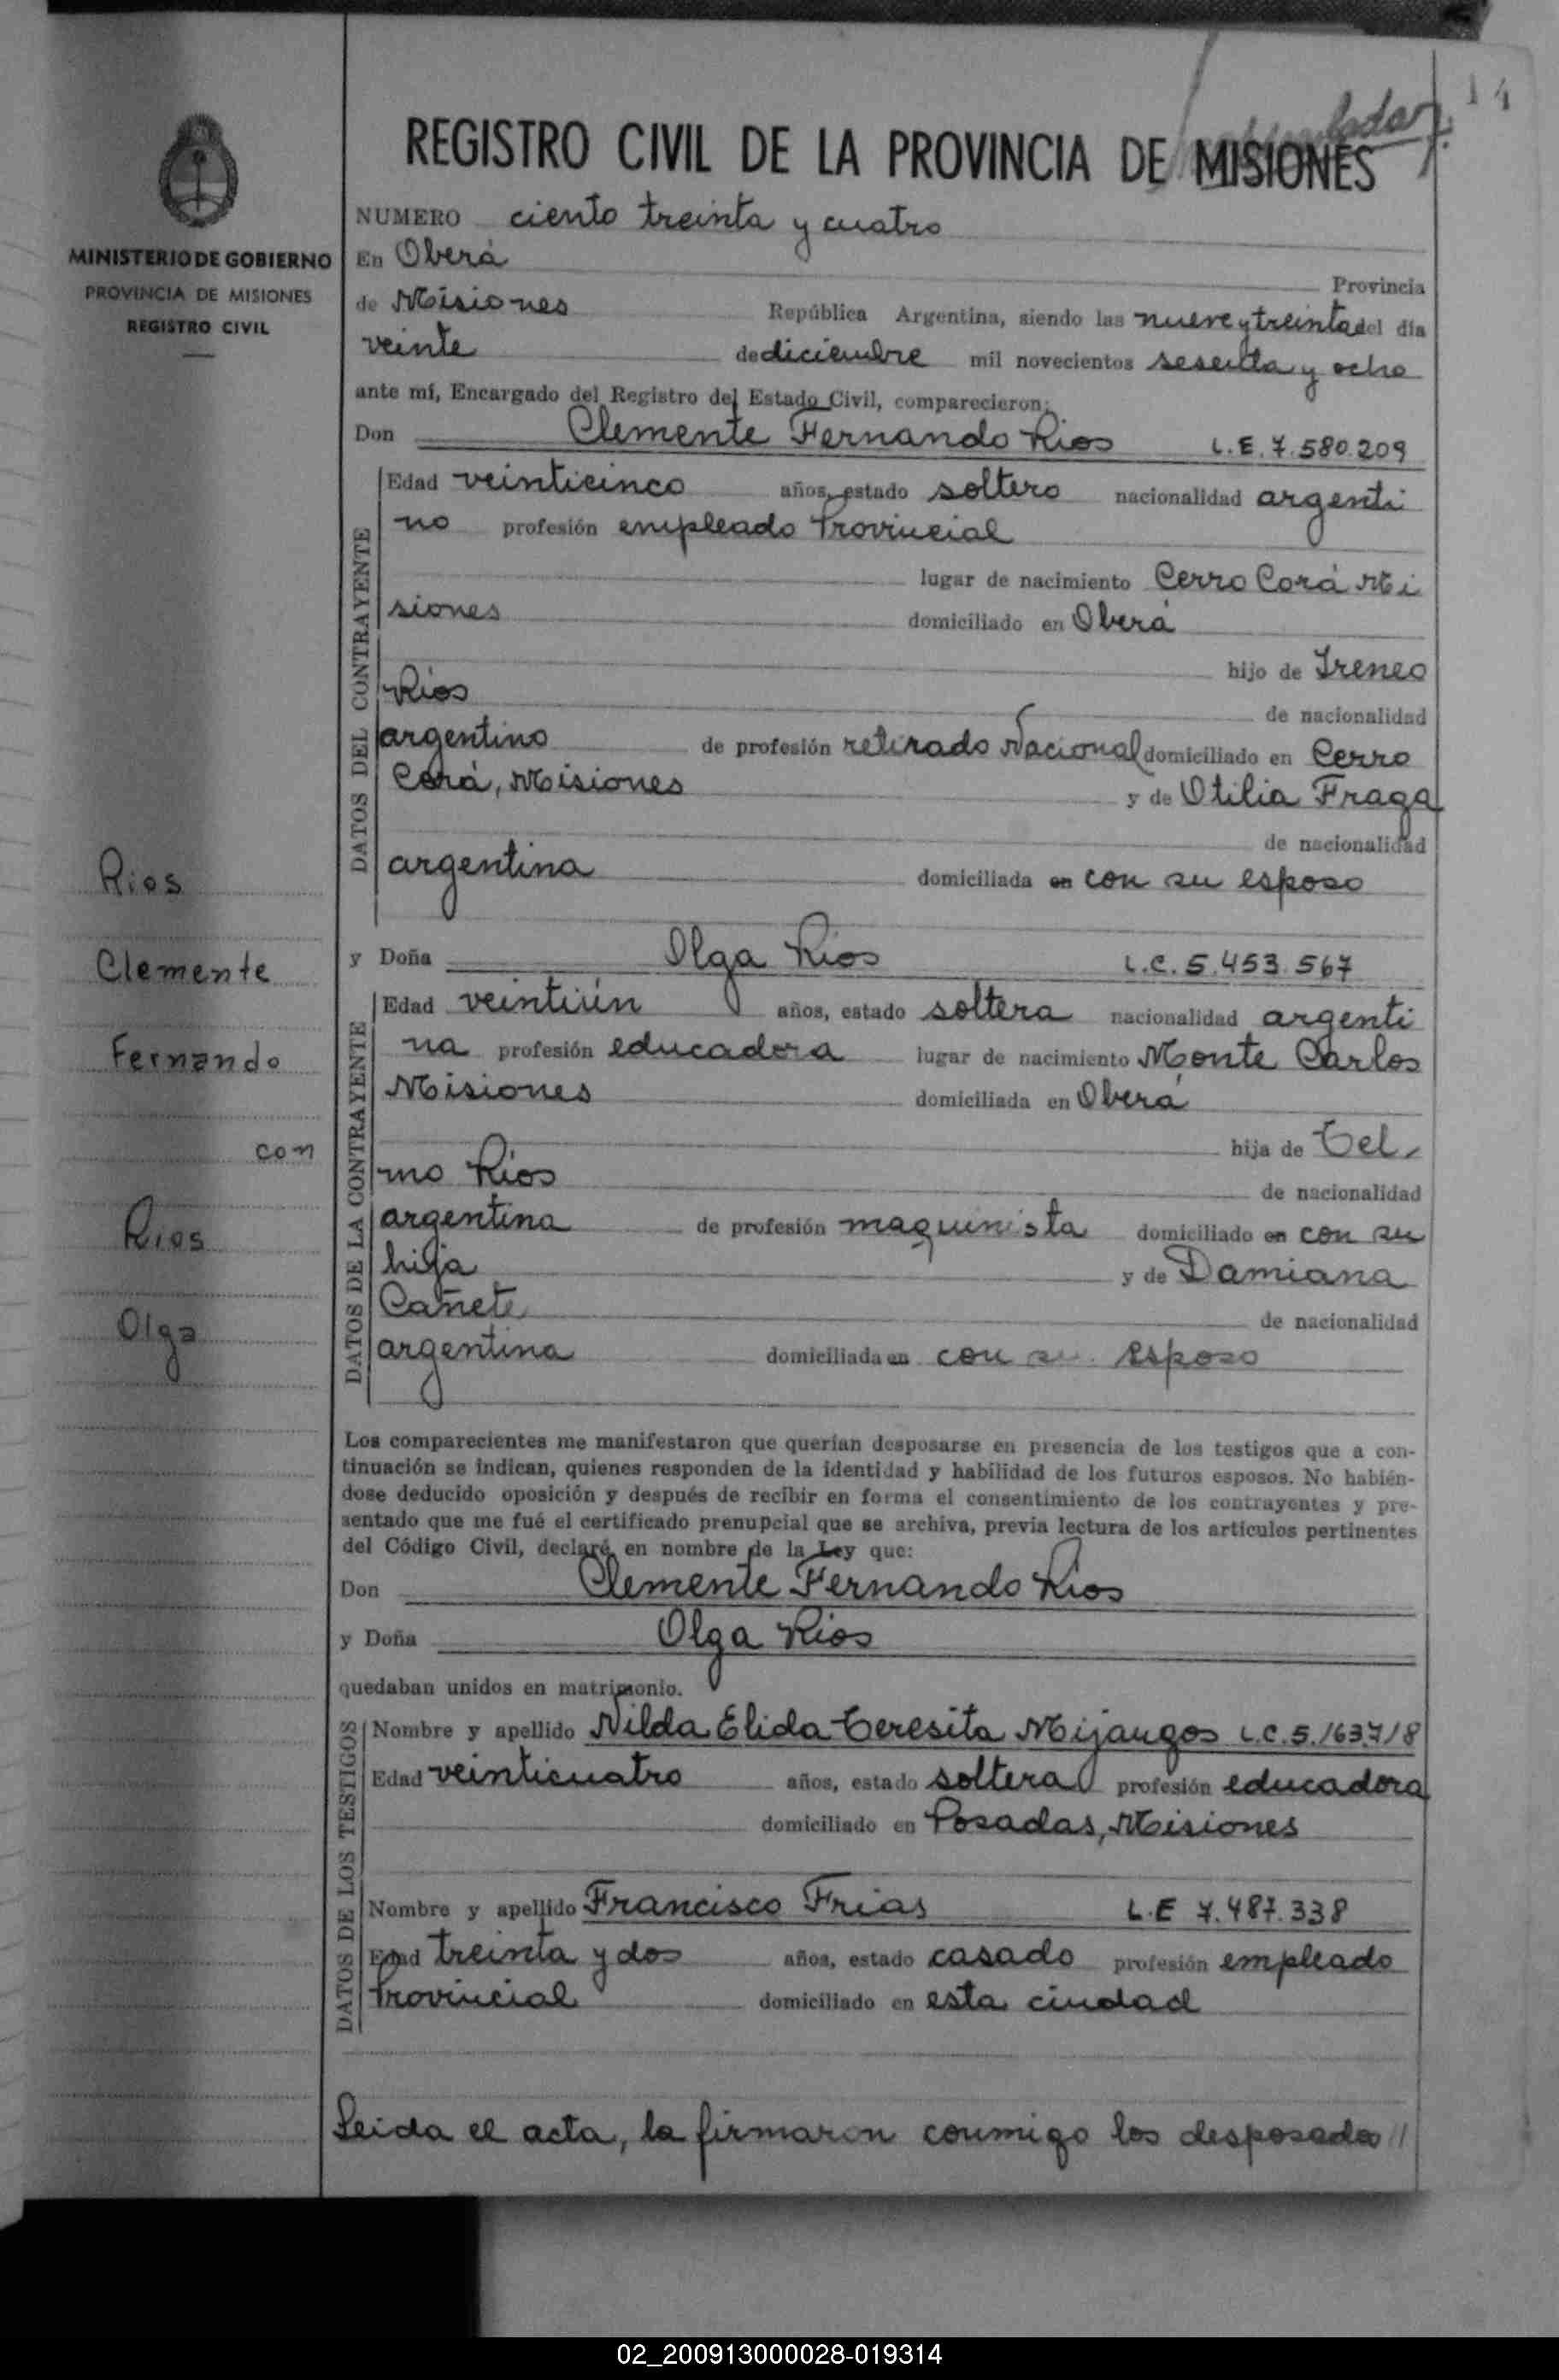 14
REGISTRO CIVIL DE LA PROVINCIA DE MISIONES
MINISTERIO DE GOBIERNO
PROVINCIA DE MISIONES
REGISTRO CIVIL
NUMERO ciento treinta y cuatro
En Oberá Provincia
de Misiones República Argentina, siendo las nueve y treinta del día
veinte de diciembre mil novecientos sesenta y ocho
ante mí, Encargado del Registro del Estado Civil, comparecieron:
Don Clemente Fernando Rios L.E. 7.580.209
DATOS DEL CONTRAYENTE
Edad veinticinco años, estado soltero nacionalidad argenti
no profesión empleado Provincial
lugar de nacimiento Cerro Corá Mi
siones domiciliado en Oberá
hijo de Ireneo
Rios de nacionalidad
argentino de profesión retirado Nacional domiciliado en Cerro
Corá, Misiones y de Otilia Fraga
de nacionalidad
argentina domiciliada en con su esposo
y Doña Olga Rios L.C. 5.453.567
DATOS DE LA CONTRAYENTE
Edad veintiún años, estado soltera nacionalidad argenti
na profesión educadora lugar de nacimiento Monte Carlos
Misiones domiciliada en Oberá
hija de Tel
mo Rios de nacionalidad
argentina de profesión maquinista domiciliado en con su
hija y de Damiana
Cañete de nacionalidad
argentina domiciliada en con su esposo
Rios
Clemente
Fernando
con
Rios
Olga
Los comparecientes me manifestaron que querían desposarse en presencia de los testigos que a con-
tinuación se indican, quienes responden de la identidad y habilidad de los futuros esposos. No habién-
dose deducido oposición y después de recibir en forma el consentimiento de los contrayentes y pre-
sentado que me fué el certificado prenupcial que se archiva, previa lectura de los artículos pertinentes
del Código Civil, declaré, en nombre de la Ley que:
Don Clemente Fernando Rios
y Doña Olga Rios
quedaban unidos en matrimonio.
DATOS DE LOS TESTIGOS
Nombre y apellido Nilda Elida Teresita Mijangos L.C. 5.163.718
Edad veinticuatro años, estado soltera profesión educadora
domiciliado en Posadas, Misiones
Nombre y apellido Francisco Frias L.E 7.487.338
Edad treinta y dos años, estado casado profesión empleado
Provincial domiciliado en esta ciudad
Leida el acta, la firmaron conmigo los desposados //
02_200913000028-019314